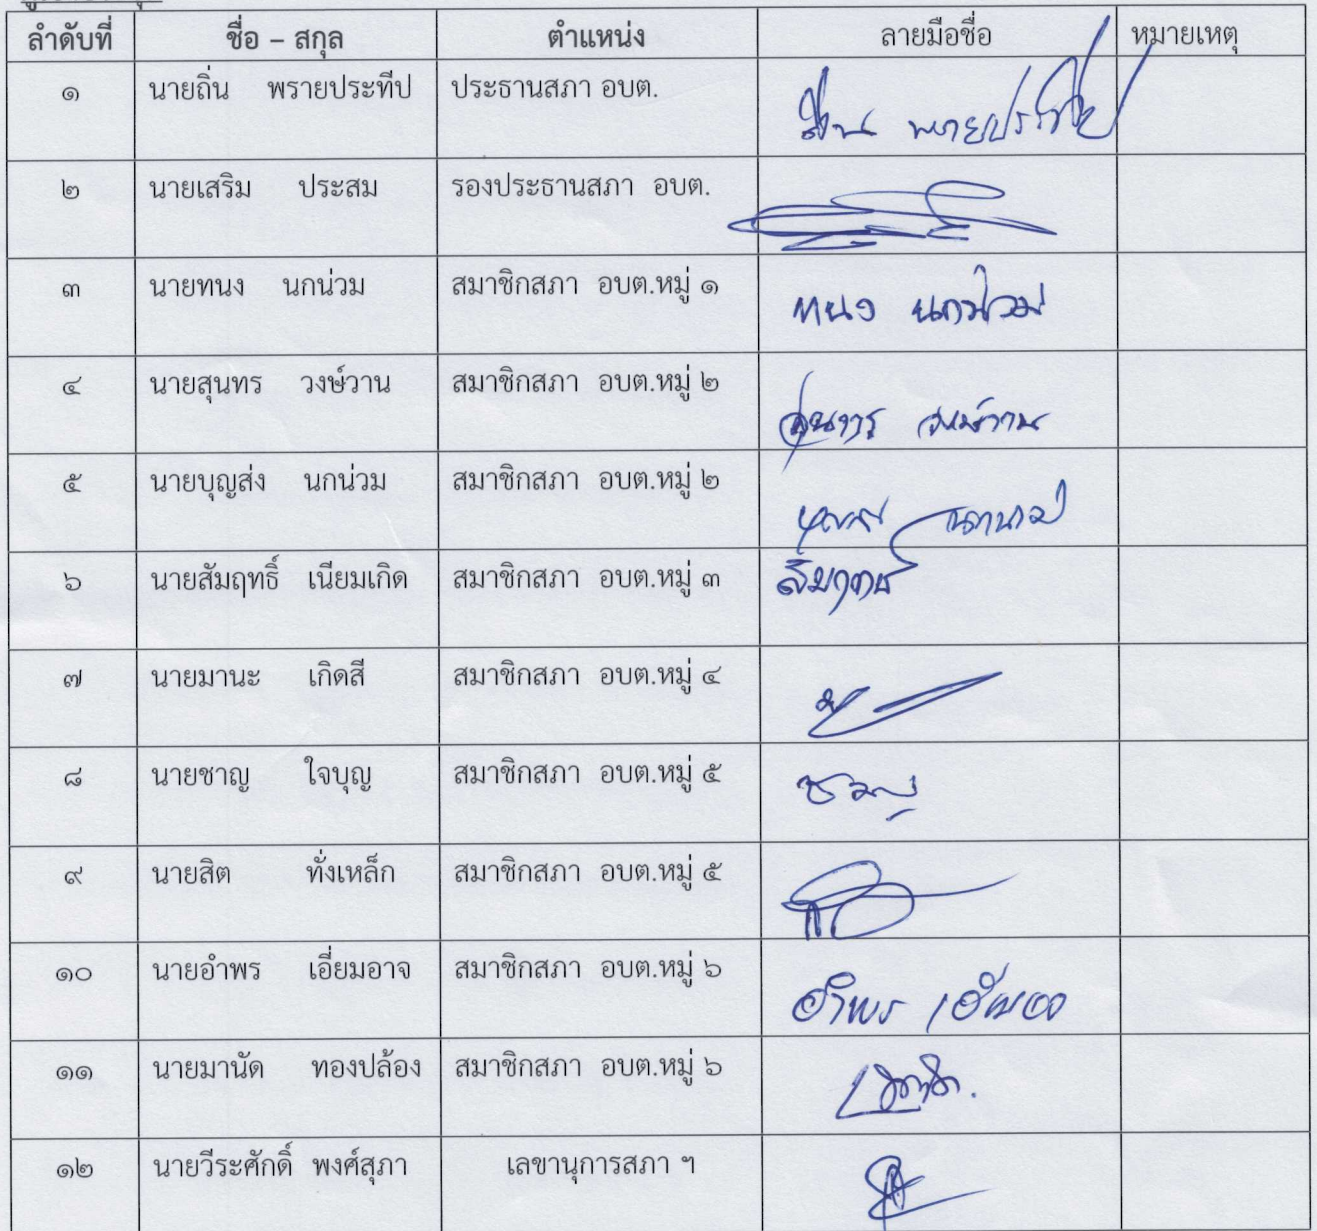 ลำดับที่ ชื่อ – สกุล ตำแหน่ง ลายมือชื่อ หมายเหตุ
๑ นายถิ่น พรายประทีป ประธานสภา อบต. ถิ่น พรายประทีป
๒ นายเสริม ประสม รองประธานสภา อบต.
๓ นายทนง นกน่วม สมาชิกสภา อบต.หมู่ ๑ ทนง นกน่วม
๔ นายสุนทร วงษ์วาน สมาชิกสภา อบต.หมู่ ๒ สุนทร วงษ์วาน
๕ นายบุญส่ง นกน่วม สมาชิกสภา อบต.หมู่ ๒
๖ นายสัมฤทธิ์ เนียมเกิด สมาชิกสภา อบต.หมู่ ๓
๗ นายมานะ เกิดสี สมาชิกสภา อบต.หมู่ ๔
๘ นายชาญ ใจบุญ สมาชิกสภา อบต.หมู่ ๕ ชาญ
๙ นายสิต ทั่งเหล็ก สมาชิกสภา อบต.หมู่ ๕
๑๐ นายอำพร เอี่ยมอาจ สมาชิกสภา อบต.หมู่ ๖ อำพร
๑๑ นายมานัด ทองปล้อง สมาชิกสภา อบต.หมู่ ๖
๑๒ นายวีระศักดิ์ พงศ์สุภา เลขานุการสภา ฯ